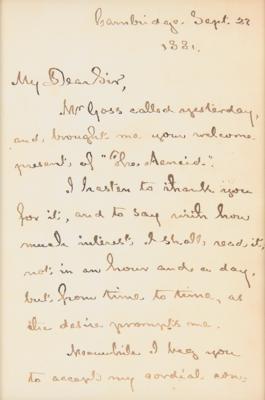 Cambridge. Sept. 23
1881.
My Dear Sir,
Mr Goss called yesterday,
and brought me your welcome
present of "The Aeneid".
I hasten to thank you
for it, and to say with how
much interest I shall read it,
not in an hour and a day,
but from time to time, as
the desire prompts me.
Meanwhile I beg you
to accept my cordial con-